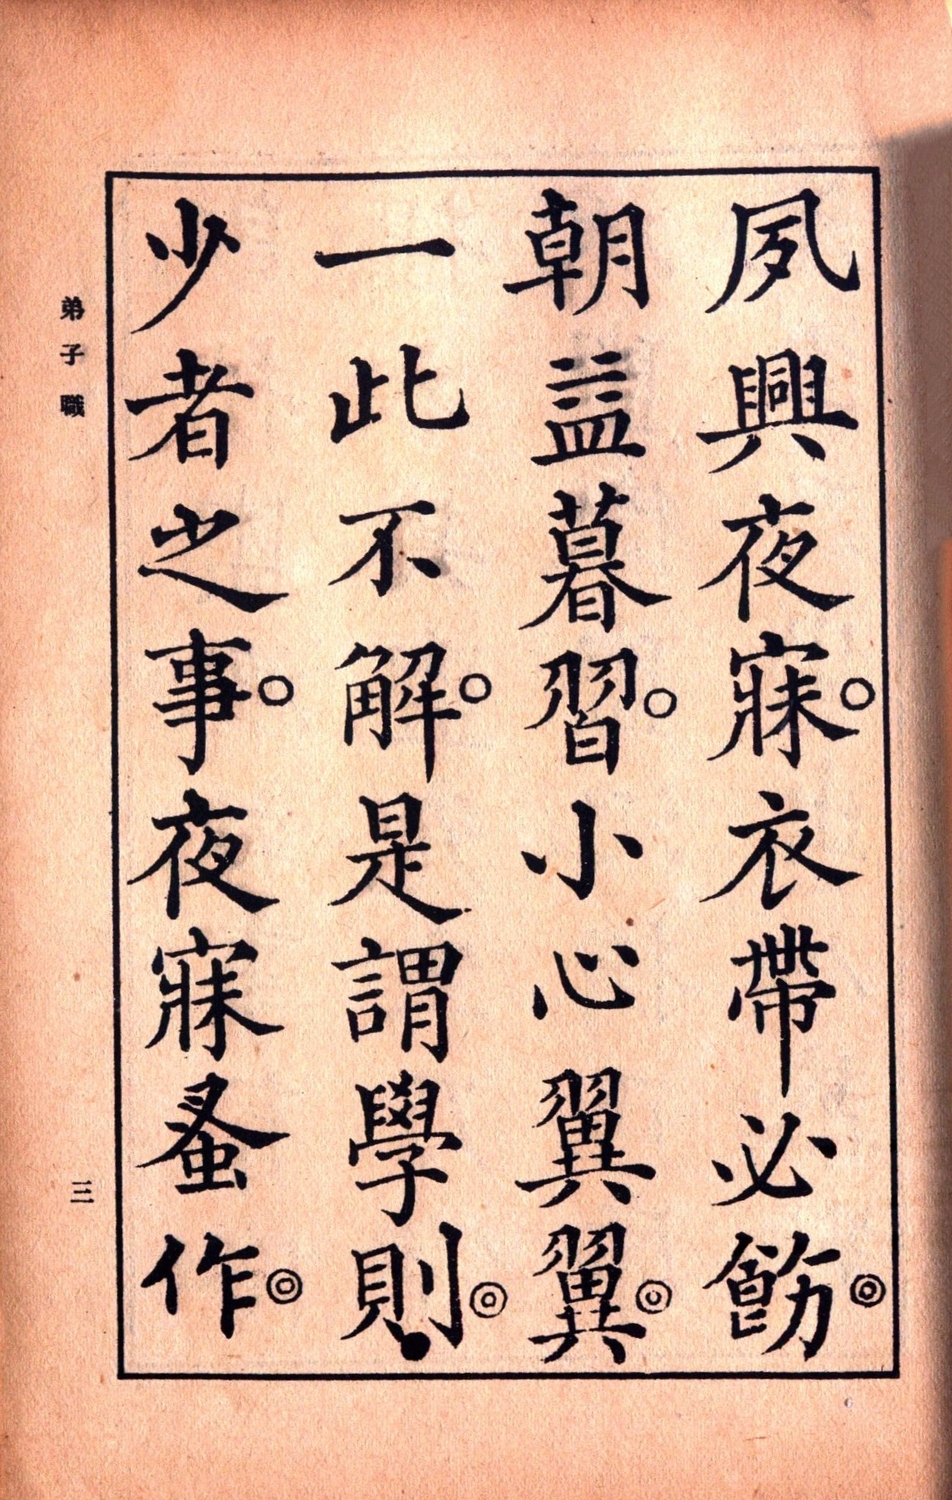 夙興夜寐○衣帶必飭◎
朝益暮習○小心翼翼◎
一此不解○是謂學則◎
少者之事○夜寐蚤作◎
弟子職
三